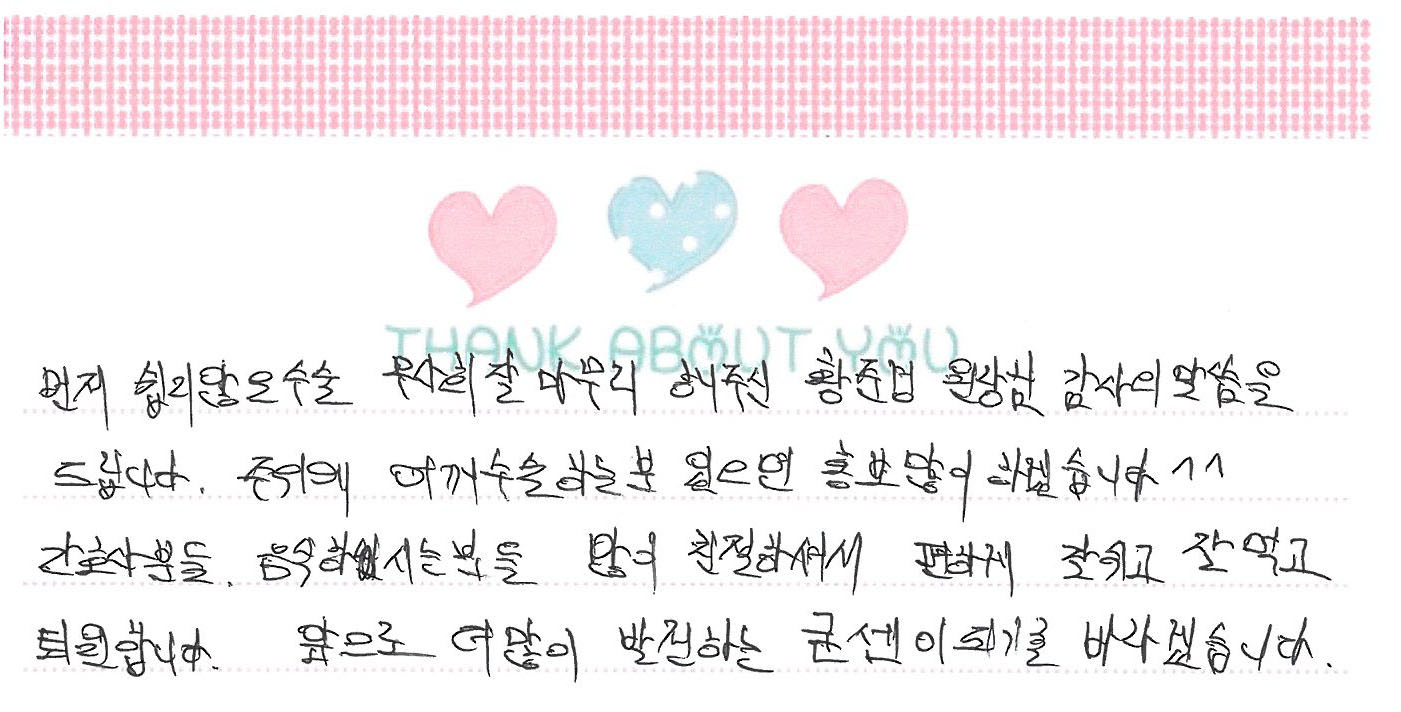 THANK ABOUT YOU
먼저 쉽지않은수술 무사히 잘 마무리 해주신 황준범 원장님 감사의 말씀을
드립니다. 주위에 어깨수술하는분 있으면 홍보많이 하겠습니다 ^^
간호사분들, 음식하시는분들 많이 친절하셔서 편하게 잘쉬고 잘먹고
퇴원합니다. 앞으로 더많이 발전하는 굿센이되기를 바라겠습니다.